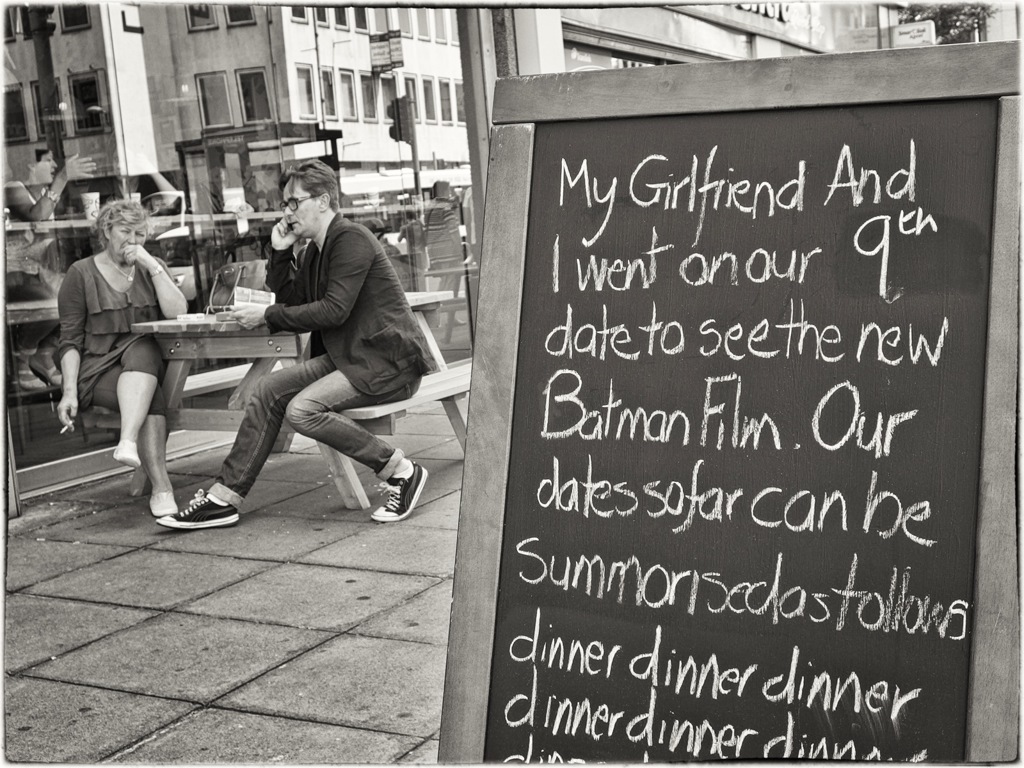 My Girlfriend And
I went on our 9th
date to see the new
Batman Film. Our
dates so far can be
summorised as follows
dinner dinner dinner
dinner dinner dinner